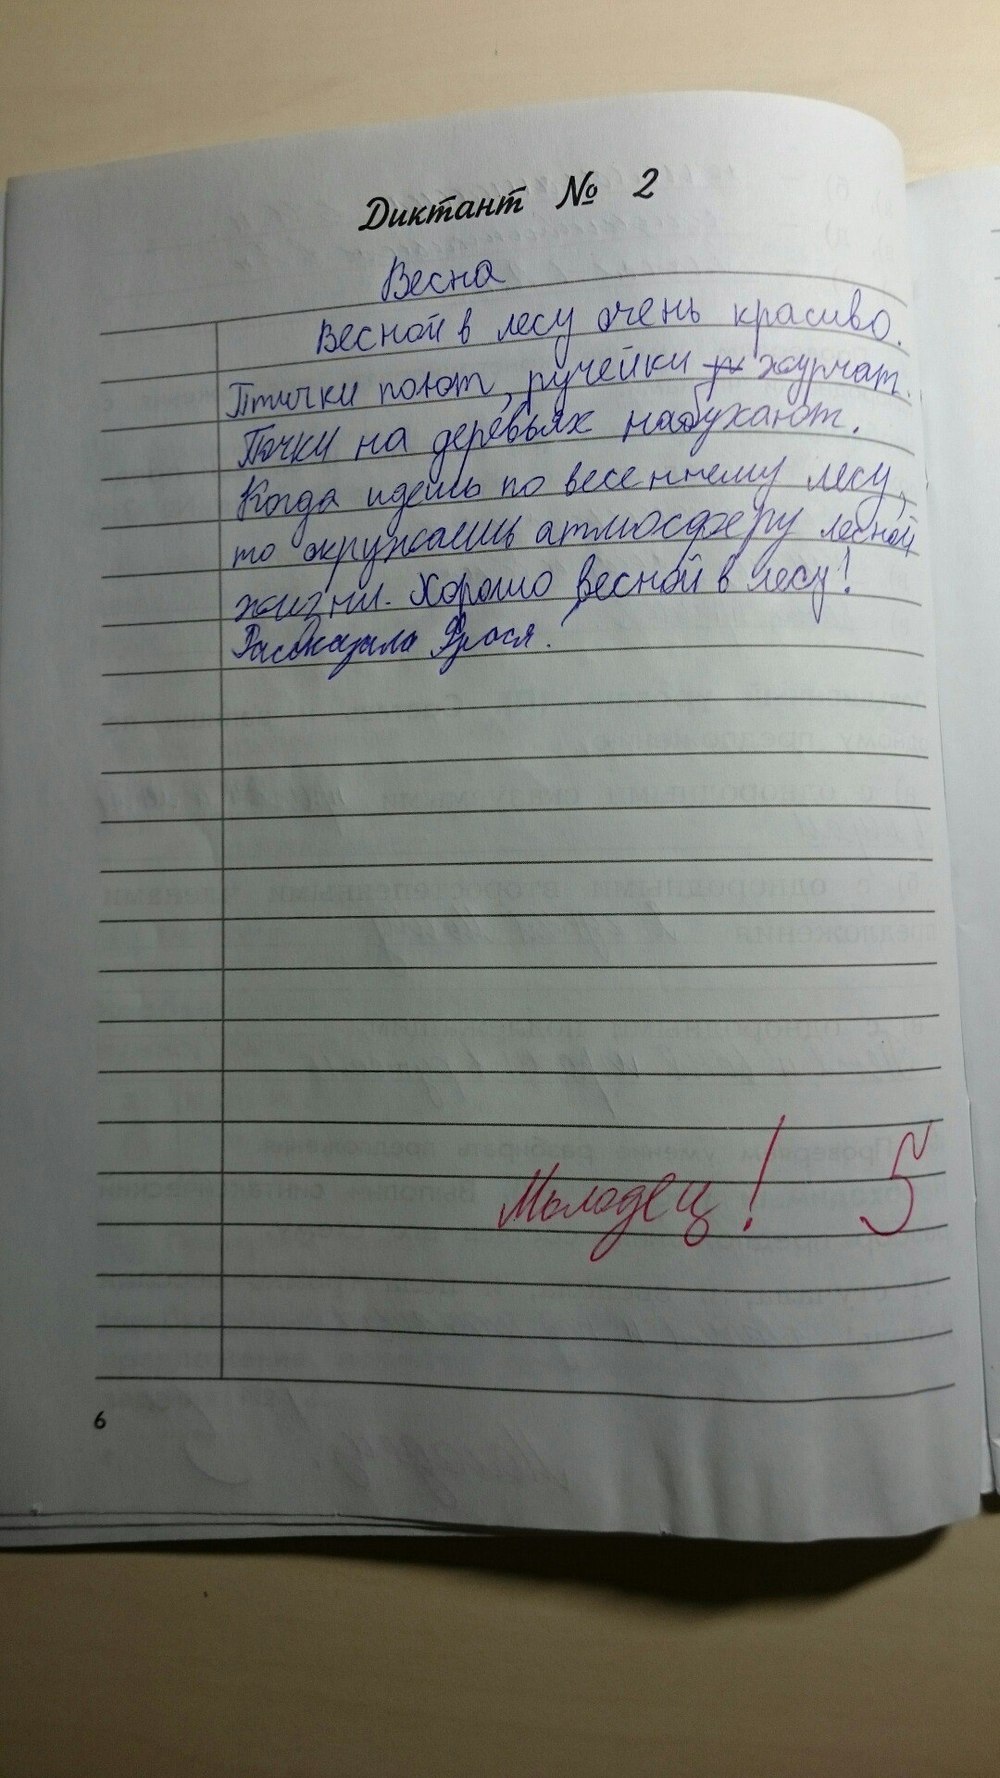 Диктант № 2
Весна
Весной в лесу очень красиво.
Птички поют, ручейки журчат.
Почки на деревьях набухают.
Когда идёшь по весеннему лесу,
то окружаешь атмосферу лесной
жизни. Хорошо весной в лесу!
Рассказала Фрося.
Молодец! 5
6